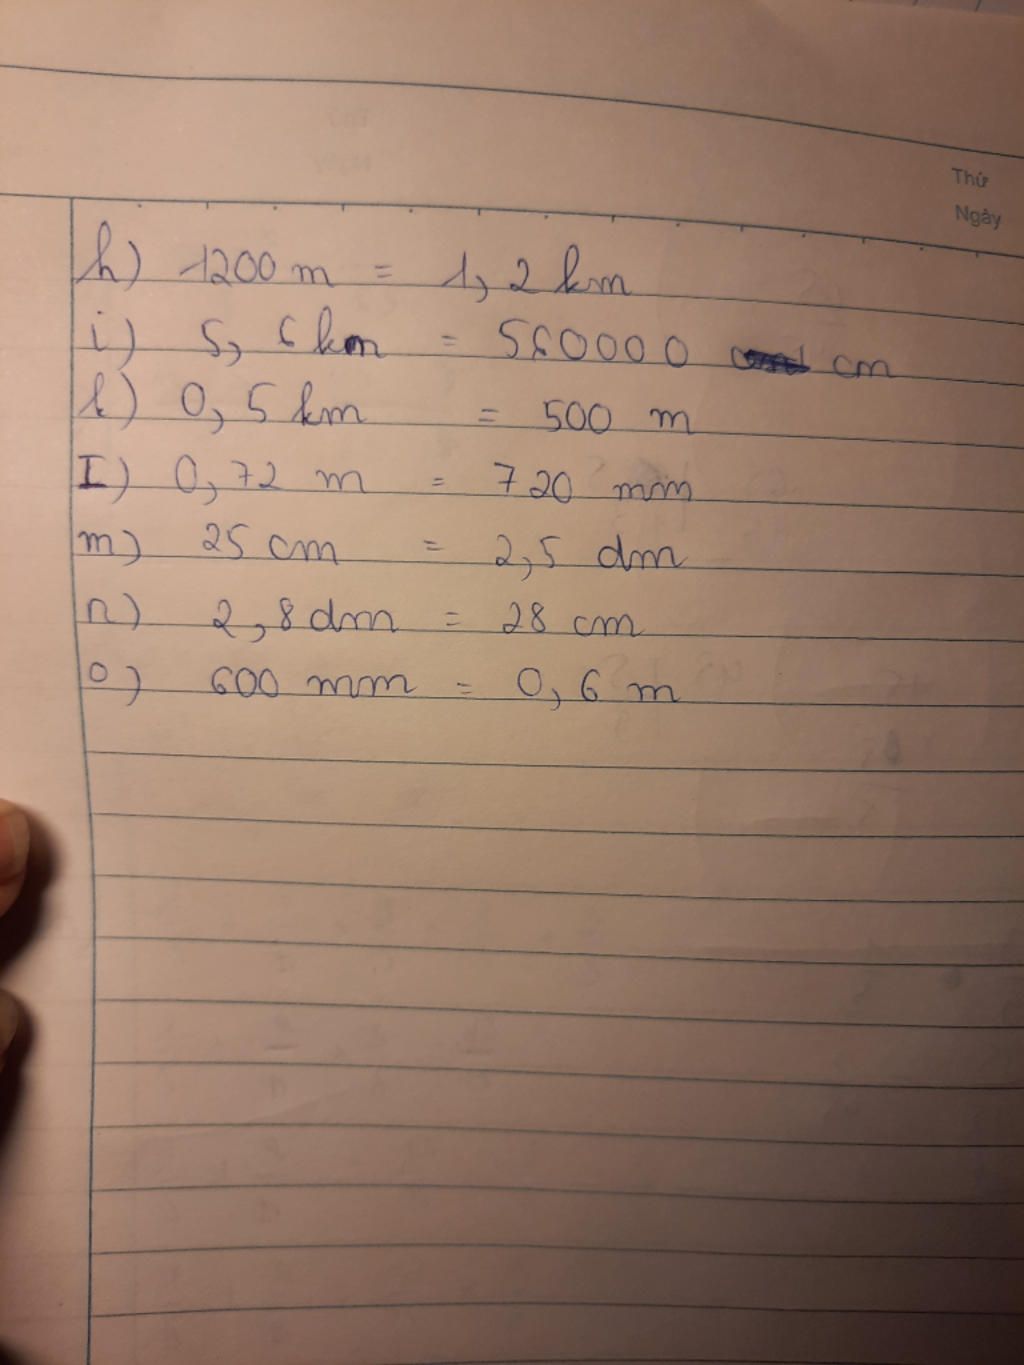 Thứ
Ngày
h) 1200 m = 1,2 km
i) 5,6 km = 560000 cm
k) 0,5 km = 500 m
I) 0,72 m = 720 mm
m) 25 cm = 2,5 dm
n) 2,8 dm = 28 cm
o) 600 mm = 0,6 m